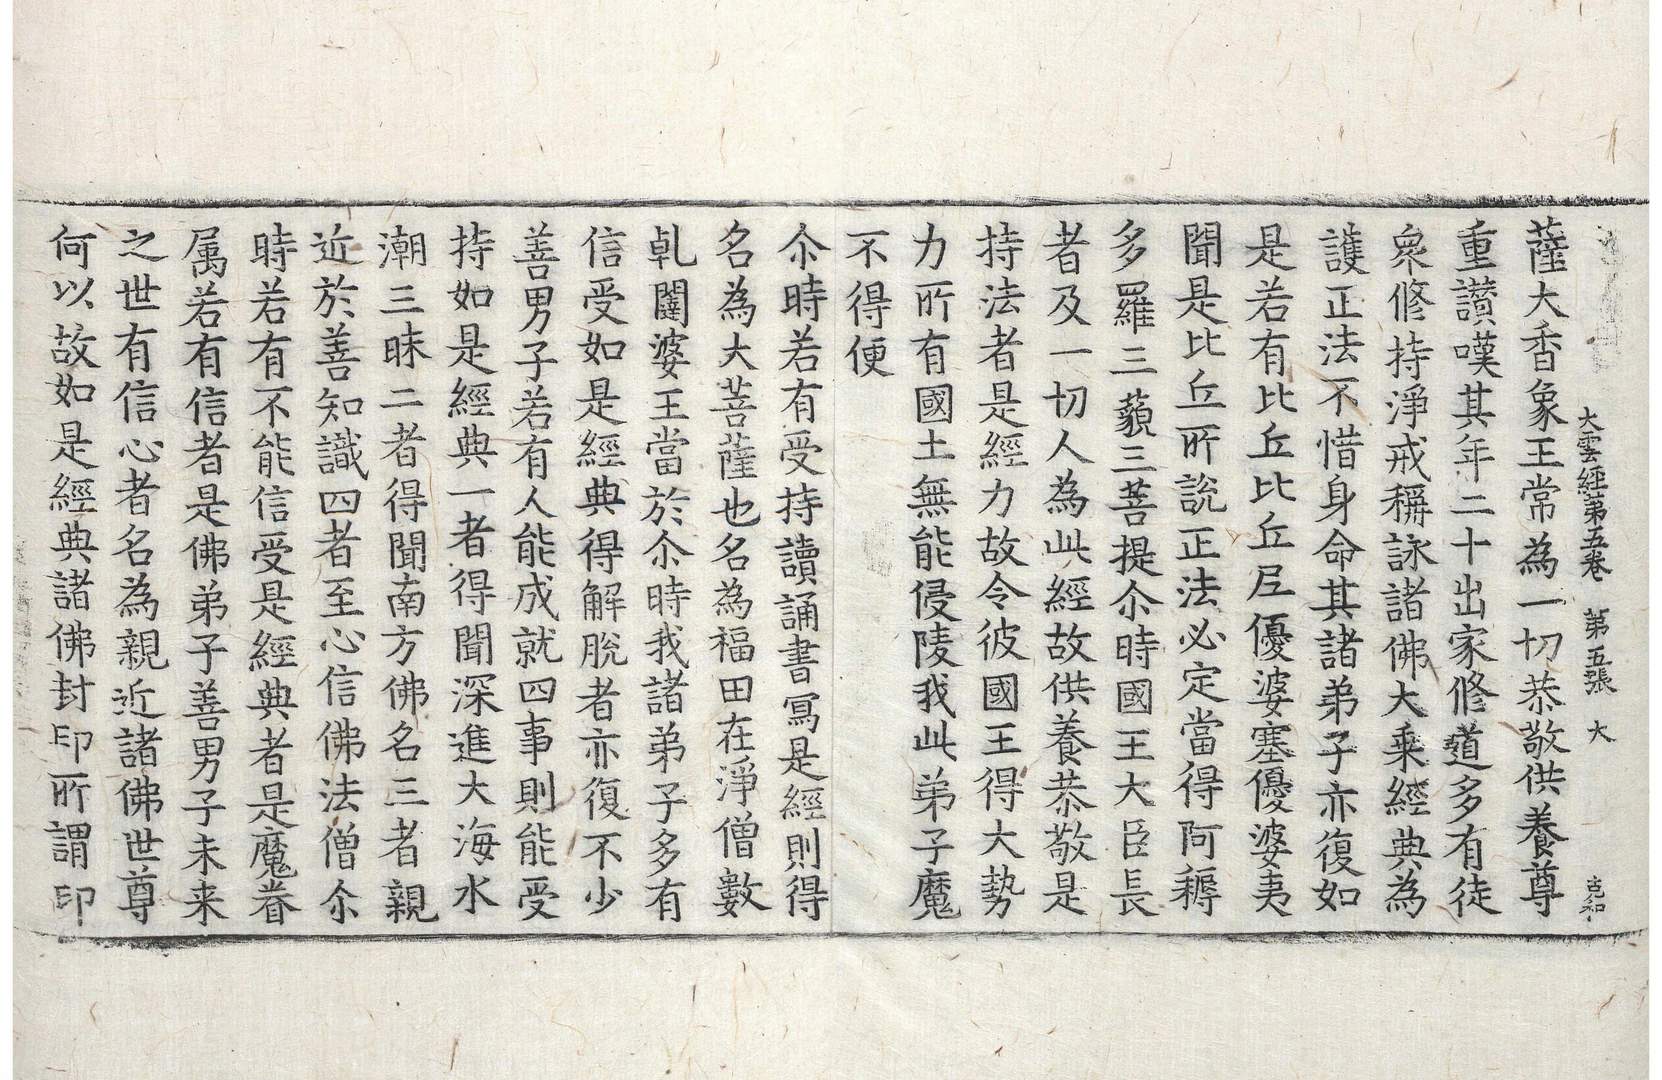 大雲經第五卷 第五張 大 克和
薩大香象王常為一切恭敬供養尊
重讃嘆其年二十出家修道多有徒
衆修持淨戒稱詠諸佛大乗經典為
護正法不惜身命其諸弟子亦復如
是若有比丘比丘尼優婆塞優婆夷
聞是比丘所說正法必定當得阿耨
多羅三藐三菩提尒時國王大臣長
者及一切人為此經故供養恭敬是
持法者是經力故令彼國王得大勢
力所有國土無能侵陵我此弟子魔
不得便
尒時若有受持讀誦書寫是經則得
名為大菩薩也名為福田在淨僧數
乹闥婆王當於尒時我諸弟子多有
信受如是經典得解脫者亦復不少
善男子若有人能成就四事則能受
持如是經典一者得聞深進大海水
潮三昧二者得聞南方佛名三者親
近於善知識四者至心信佛法僧尒
時若有不能信受是經典者是魔眷
属若有信者是佛弟子善男子未来
之世有信心者名為親近諸佛世尊
何以故如是經典諸佛封印所謂印